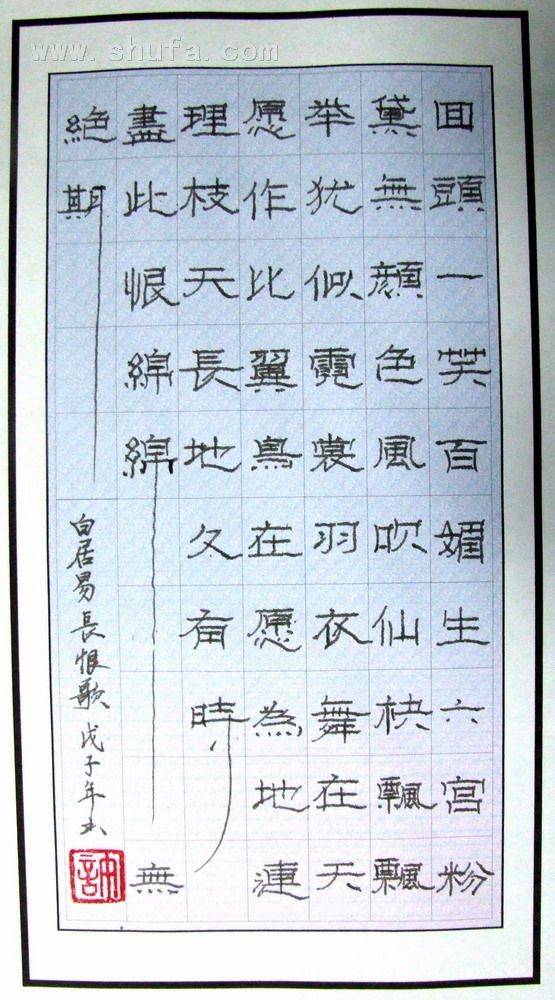 www.shufa.com
回頭一笑百媚生六宮粉
黛無顔色風吹仙袂飄飄
举犹似霓裳羽衣舞在天
愿作比翼鳥在愿為地連
理枝天長地久有時
盡此恨綿綿無
絶期
白居易長恨歌戊子年书